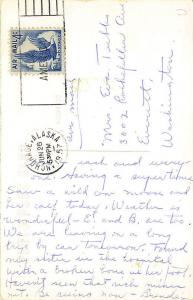 AIR MAIL
ANCHORAGE, ALASKA
JUN 26
530 PM
1957
Mrs Eva Tubbs
3002 Rockefeller Ave
Everett,
Washington.
each and every
one. Having a super time
Saw a wild cow moose and
her calf today. Weather is
wonderful - E. and B. are too.
We are leaving on a long
trip by car tomorrow. Found
my sister in the hospital
with a broken bone in her foot.
Having seen that much
out. Be seeing you -